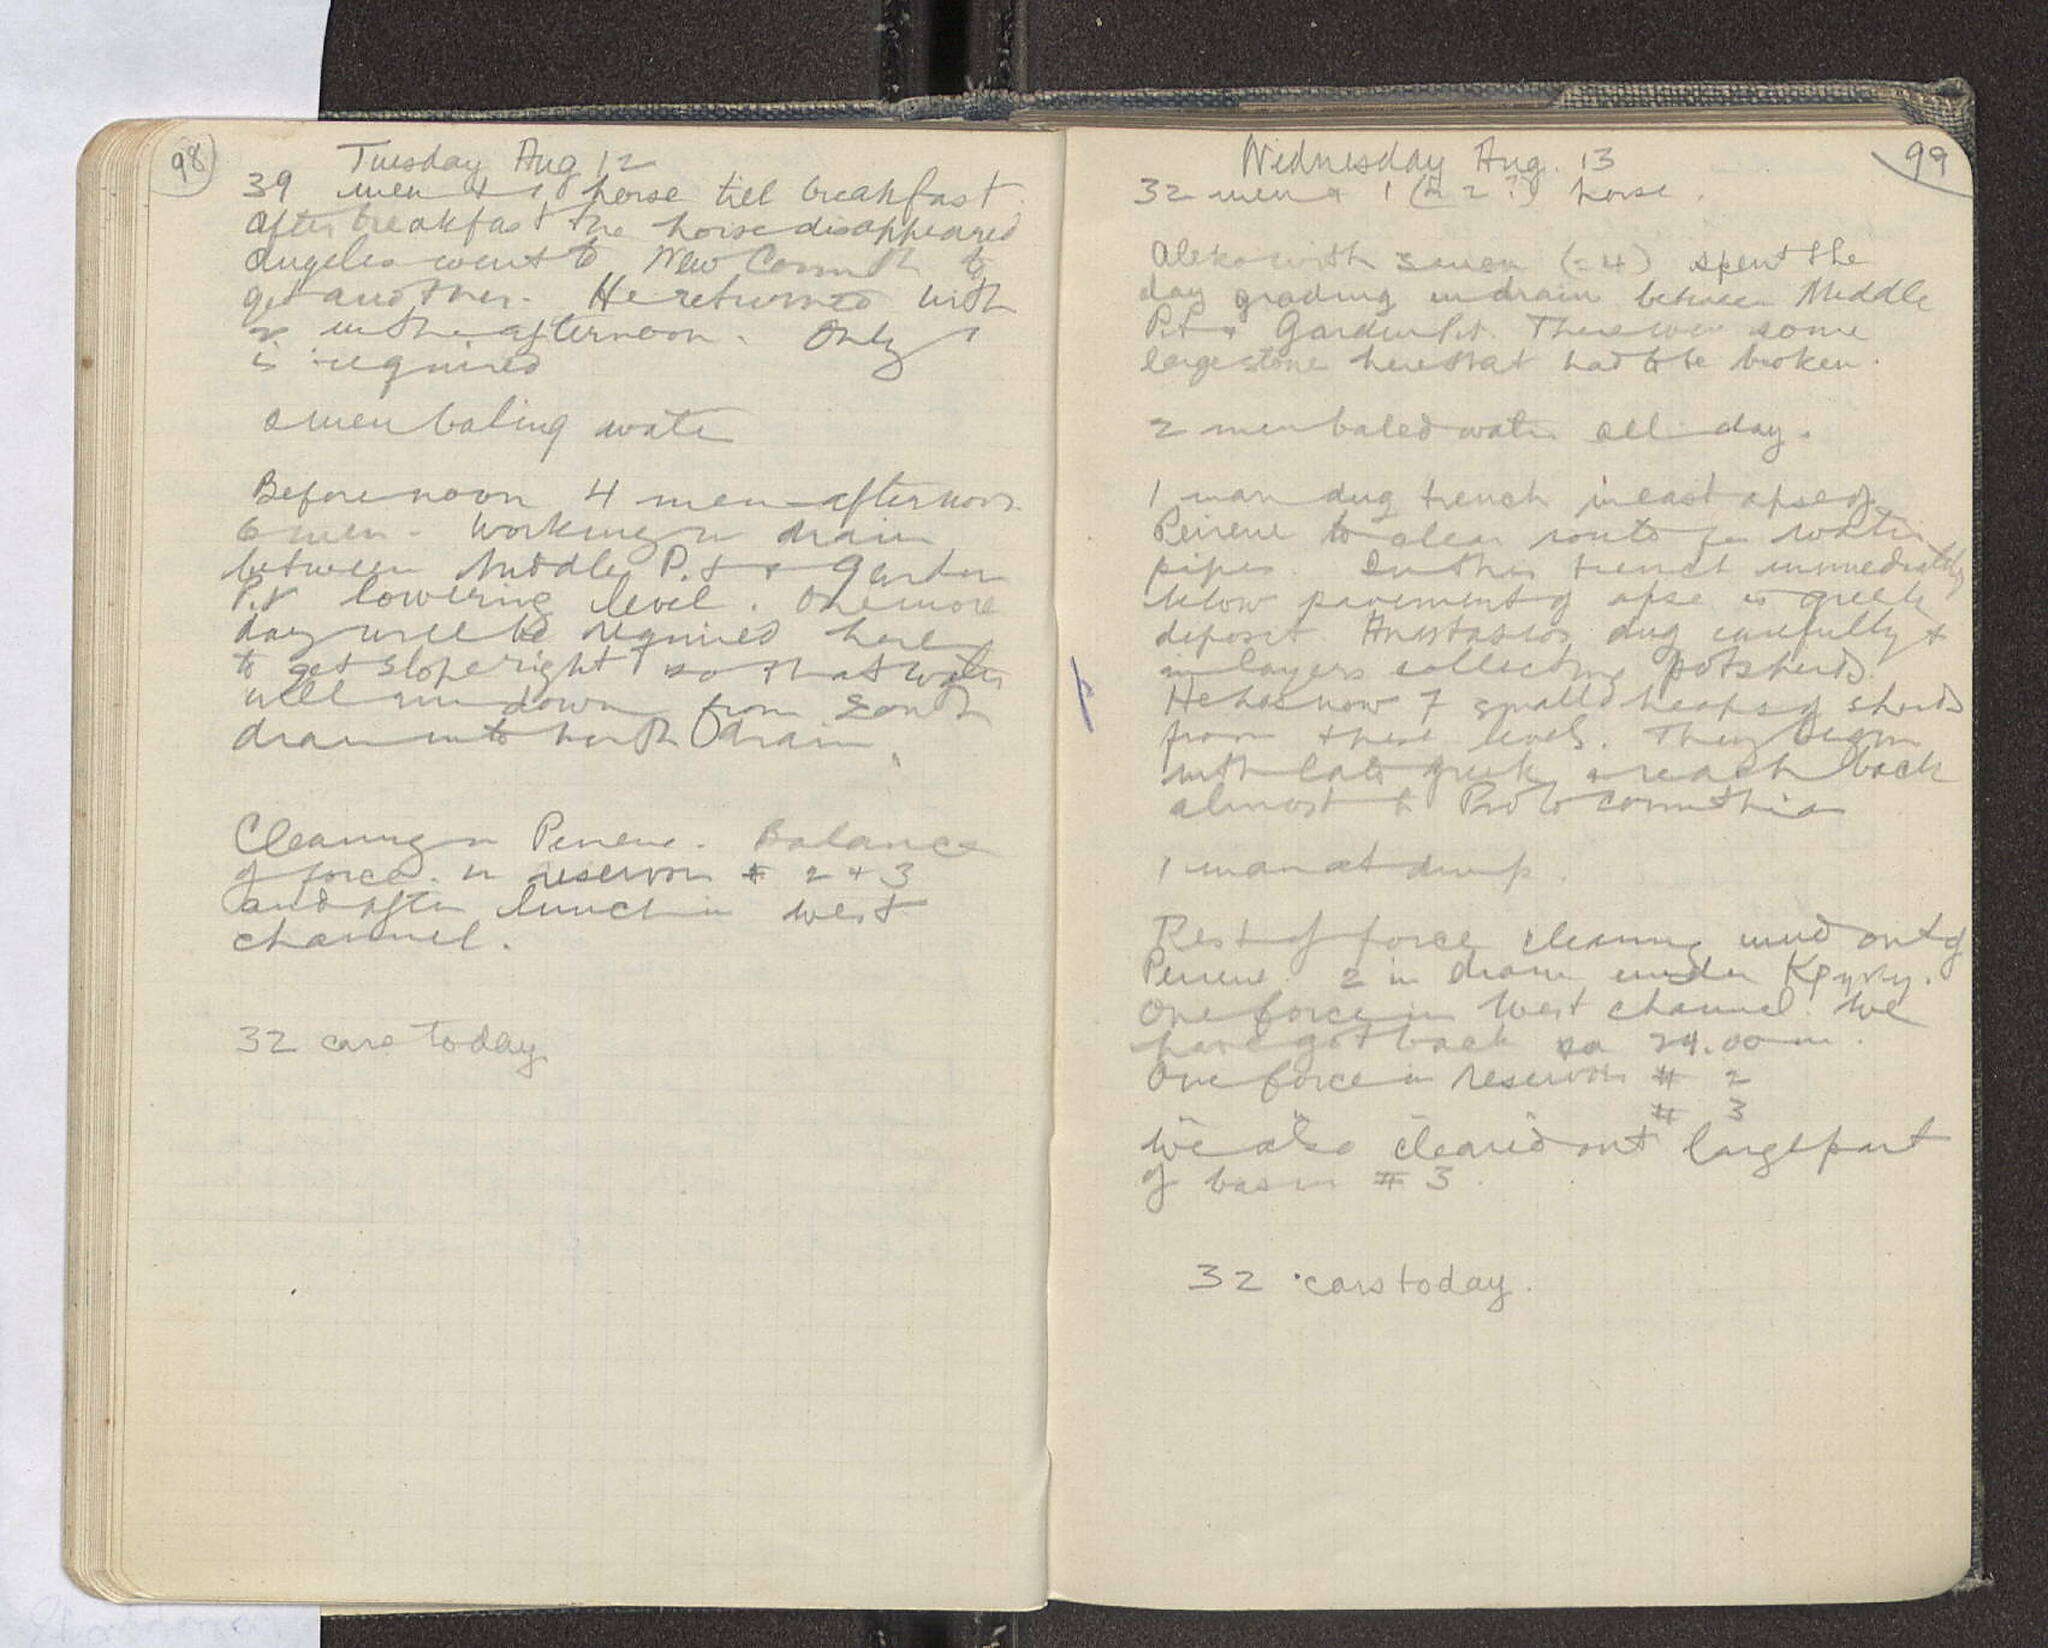 98
Tuesday Aug 12
39 men + 1 horse till breakfast.
After breakfast the horse disappeared
Angelis went to New Corinth to
get another. He returned with
2 in the afternoon. Only 1
is required
2 men baling water
Before noon 4 men - afternoon
6 men - working in drain
between Middle Pit + Garden
Pit lowering level. One more
day will be required here
to get slope right so that water
will run down from South
drain into north drain.
Clearing in Peirene. Balance
of force in reservoir # 2 + 3
and after lunch in west
channel.
32 cars today
99
Wednesday Aug. 13
32 men + 1 (or 2?) horse.
Aleko with 3 men (=4) spent the
day grading in drain between Middle
Pit + Garden Pit. There were some
large stone here that had to be broken.
2 men baled water all day.
1 man dug trench in east apse of
Peirene to clear route for water
pipes. In this trench immediately
below pavement of apse is greek
deposit. Anastasios dug carefully +
in layers collecting potsherds.
He has now 7 small heaps of sherds
from these levels. They begin
with late greek + reach back
almost to Proto Corinthian
1 man at dump.
Rest of force clearing mud out of
Peirene. 2 in drain under
One force in West channel. We
have got back 24.00 m.
One force in reservoir # 2
" " " # 3
We also cleared out large part
of basin # 3.
32 cars today.